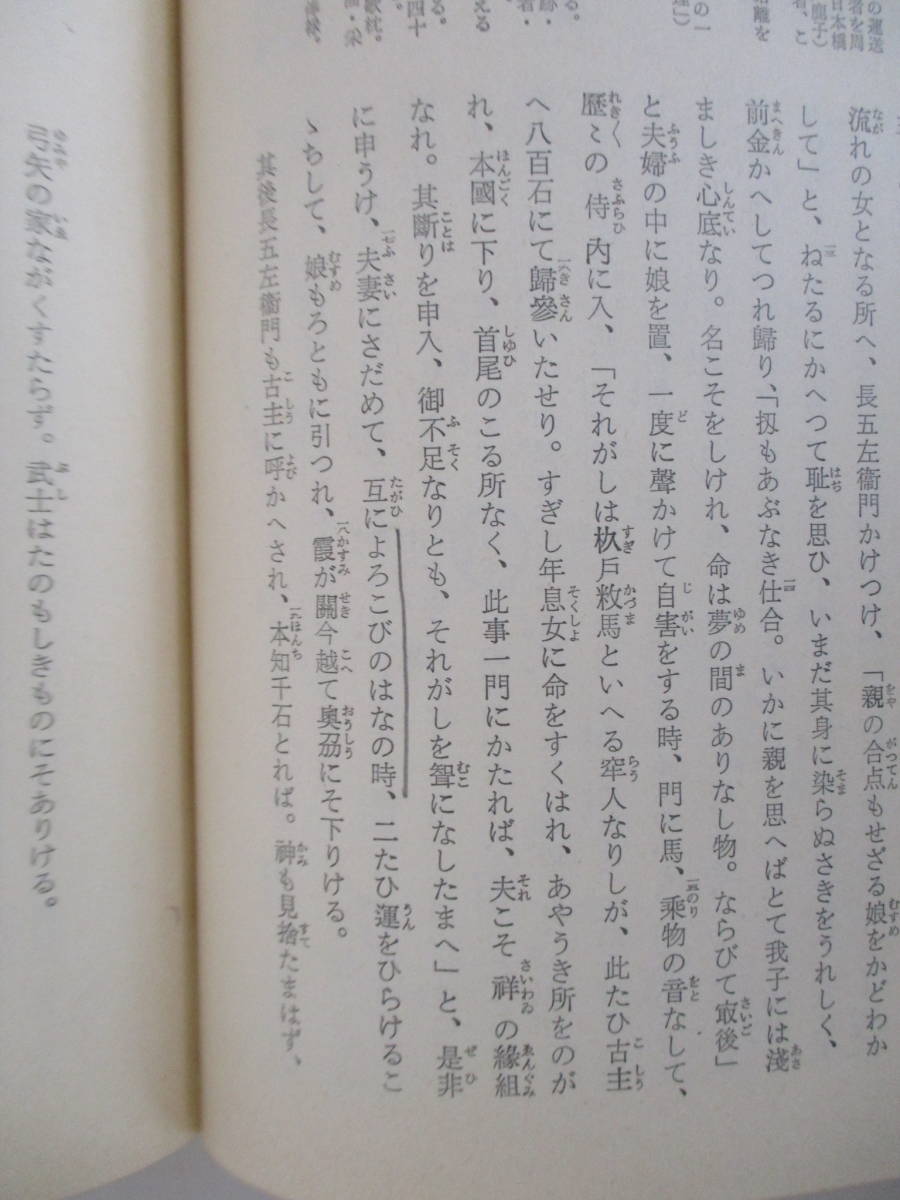 の運送
者を周
日本橋
鹿子）
者、こ
距離を
の一
運し）
る。
跡・
者・
える
る。
四十
歌枕。
流れの女となる所へ、長五左衞門かけつけ、「親の合点もせざる娘をかどわか
して」と、ねたるにかへつて耻を思ひ、いまだ其身に染らぬさきをうれしく、
前金かへしてつれ歸り、「扨もあぶなき仕合。いかに親を思へばとて我子には淺
ましき心底なり。名こそをしけれ、命は夢の間のありなし物。ならびて㝡後」
と夫婦の中に娘を置、一度に聲かけて自害をする時、門に馬、乘物の音なして、
歷〻の侍内に入、「それがしは杦戶敉馬といへる窂人なりしが、此たひ古主
へ八百石にて歸參いたせり。すぎし年息女に命をすくはれ、あやうき所をのが
れ、本國に下り、首尾のこる所なく、此事一門にかたれば、夫こそ祥の緣組
なれ。其斷りを申入、御不足なりとも、それがしを聟になしたまへ」と、是非
に申うけ、夫妻にさだめて、互によろこびのはなの時、二たひ運をひらけるこ
ゝちして、娘もろともに引つれ、霞が關今越て奧刕にそ下りける。
其後長五左衞門も古主に呼かへされ、本知千石とれば。神も見捨たまはず、
弓矢の家ながくすたらず。武士はたのもしきものにそありける。